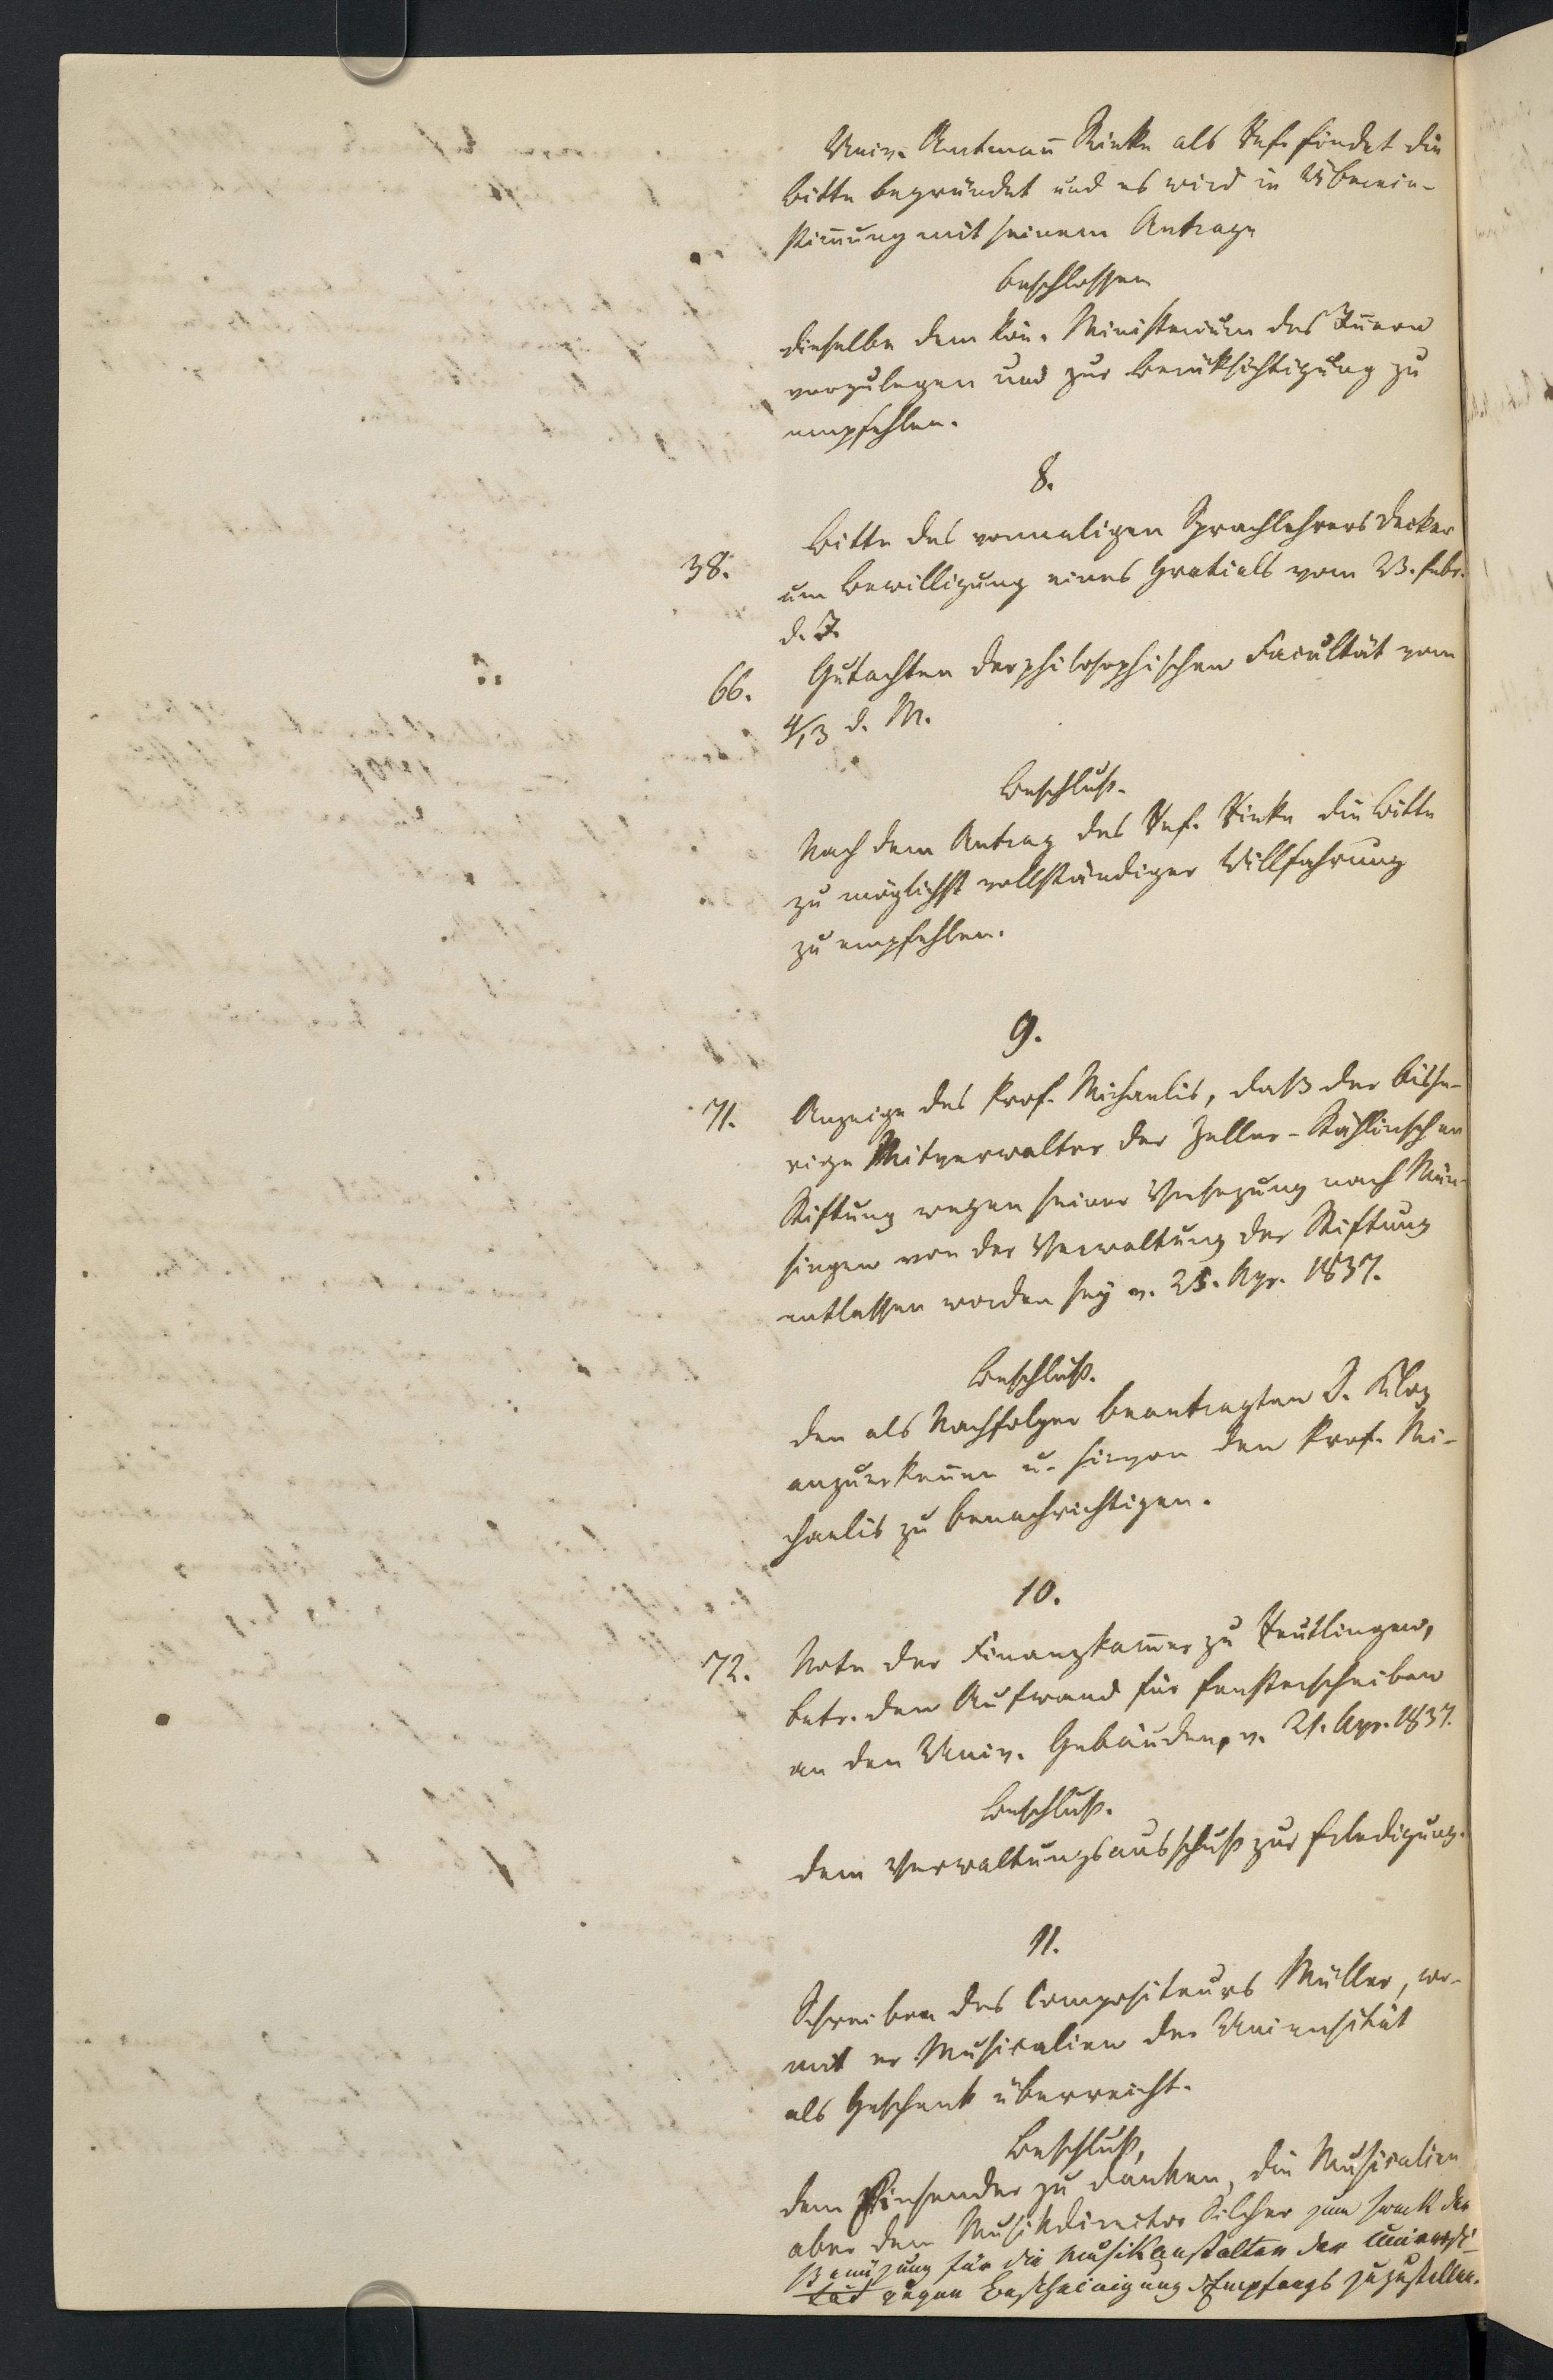 Univ. Amtmañ Rinke als Ref. findet die
Bitte begründet und es wird in Überein-
stim̄ung mit seinem Antrage
beschlossen
dieselbe dem kön. Ministerium des Iñern
vorzulegen und zur Berüksichtigung zu
empfehlen.
8.
38. Bitte des vormaligen Sprachlehrers Decker
um Bewilligung eines Gratials vom 23. Febr.
d. J.
66. Gutachten der philosophischen Facultät vom
4/13 d. M.
Beschluß.
Nach dem Antrag des Ref. Rinke die Bitte
zu möglichst vollständiger Willfahrung
zu empfehlen.
9.
71. Anzeige des Prof. Michaelis, daß der bishe-
rige Mitverwalter der Zeller-Stählinschen
Stiftung wegen seiner Versezung nach Mün-
singen von der Verwaltung der Stiftung
entlassen worden sey v. 25. Apr. 1837.
Beschluß.
den als Nachfolger beantragten D. Kloz
anzuerkeñen u. hievon den Prof. Mi-
chaelis zu benachrichtigen.
10.
72. Note der Finanzkam̄er zu Reutlingen,
betr. den Aufwand für Fensterscheiben
an den Univ. Gebäuden, v. 21. Apr. 1837.
Beschluß.
dem Verwaltungsausschuß zur Erledigung.
11.
Schreiben des Compositeurs Müller, wo-
mit er Musicalien der Universität
als Geschenk überreicht.
Beschluß,
dem Einsender zu danken, die Musicalien
aber dem Musikdirector Silcher zum Zweck der
Benüzung für die Musikanstalten der Universi-
tät gegen Bescheinigung d. Empfangs zuzustellen.